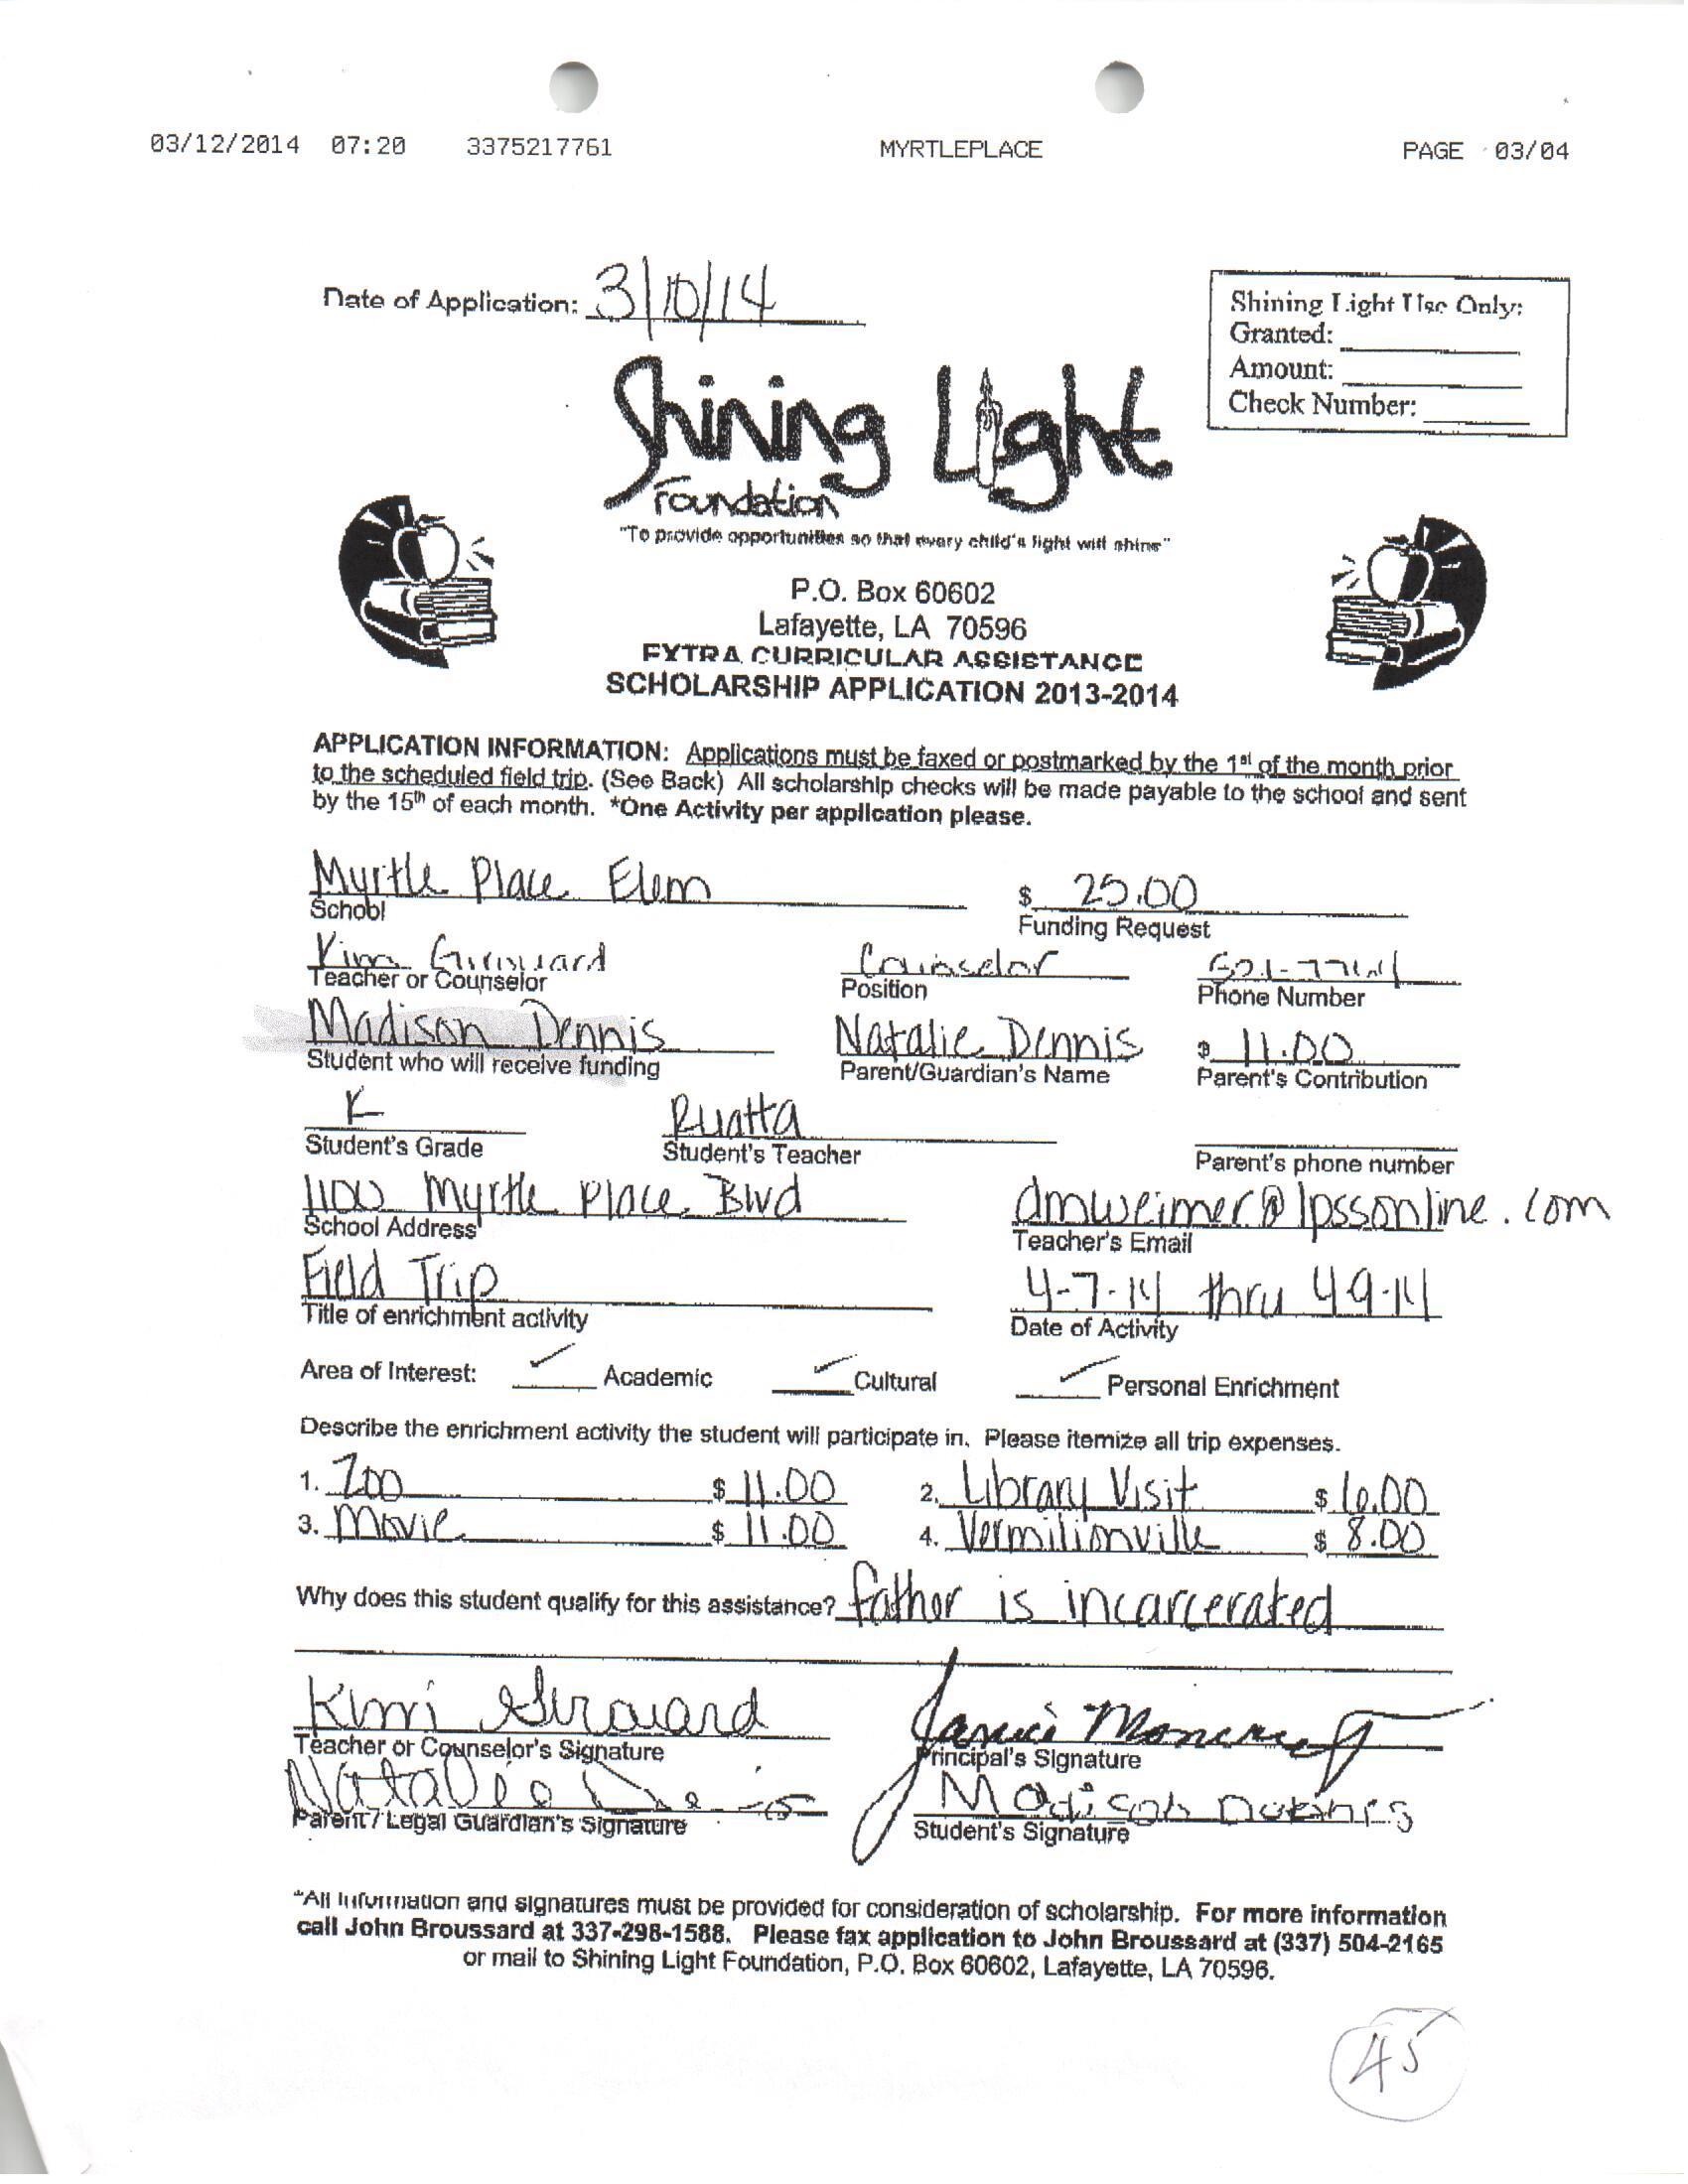 03/12/2014 07:20 3375217761 MYRTLEPLACE PAGE 03/04
Date of Application: 3/10/14
Shining Light Use Only:
Granted:
Amount:
Check Number:
Shining Light
Foundation
"To provide opportunities so that every child's light will shine"
P.O. Box 60602
Lafayette, LA 70596
EXTRA CURRICULAR ASSISTANCE
SCHOLARSHIP APPLICATION 2013-2014
APPLICATION INFORMATION: Applications must be faxed or postmarked by the 1st of the month prior
to the scheduled field trip. (See Back) All scholarship checks will be made payable to the school and sent
by the 15th of each month. *One Activity per application please.
Myrtle Place Elem $ 25.00
School Funding Request
Kim Girouard Counselor 521-7761
Teacher or Counselor Position Phone Number
Madison Dennis Natalie Dennis $ 11.00
Student who will receive funding Parent/Guardian's Name Parent's Contribution
K
Student's Grade Student's Teacher Parent's phone number
1100 Myrtle Place Blvd dmweimer@lpssonline.com
School Address Teacher's Email
Field Trip 4-7-14 thru 4-9-14
Title of enrichment activity Date of Activity
Area of Interest: ✓ Academic ✓ Cultural ✓ Personal Enrichment
Describe the enrichment activity the student will participate in. Please itemize all trip expenses.
1. Zoo $ 11.00 2. Library Visit $ 6.00
3. Movie $ 11.00 4. Vermilionville $ 8.00
Why does this student qualify for this assistance? father is incarcerated
Kim Girouard Janice Moncrief
Teacher or Counselor's Signature Principal's Signature
Natalie Dennis Madison
Parent / Legal Guardian's Signature Student's Signature
*All information and signatures must be provided for consideration of scholarship. For more information
call John Broussard at 337-298-1588. Please fax application to John Broussard at (337) 504-2165
or mail to Shining Light Foundation, P.O. Box 60602, Lafayette, LA 70596.
45